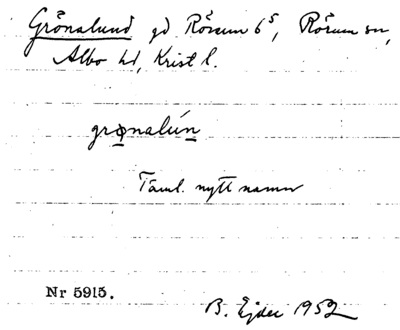 Grönalund gd Rörum 6⁵, Rörum sn,
Albo hd, Krist l.
grønalún
Taml. nytt namn
Nr 5915.
B. Ejder 1952